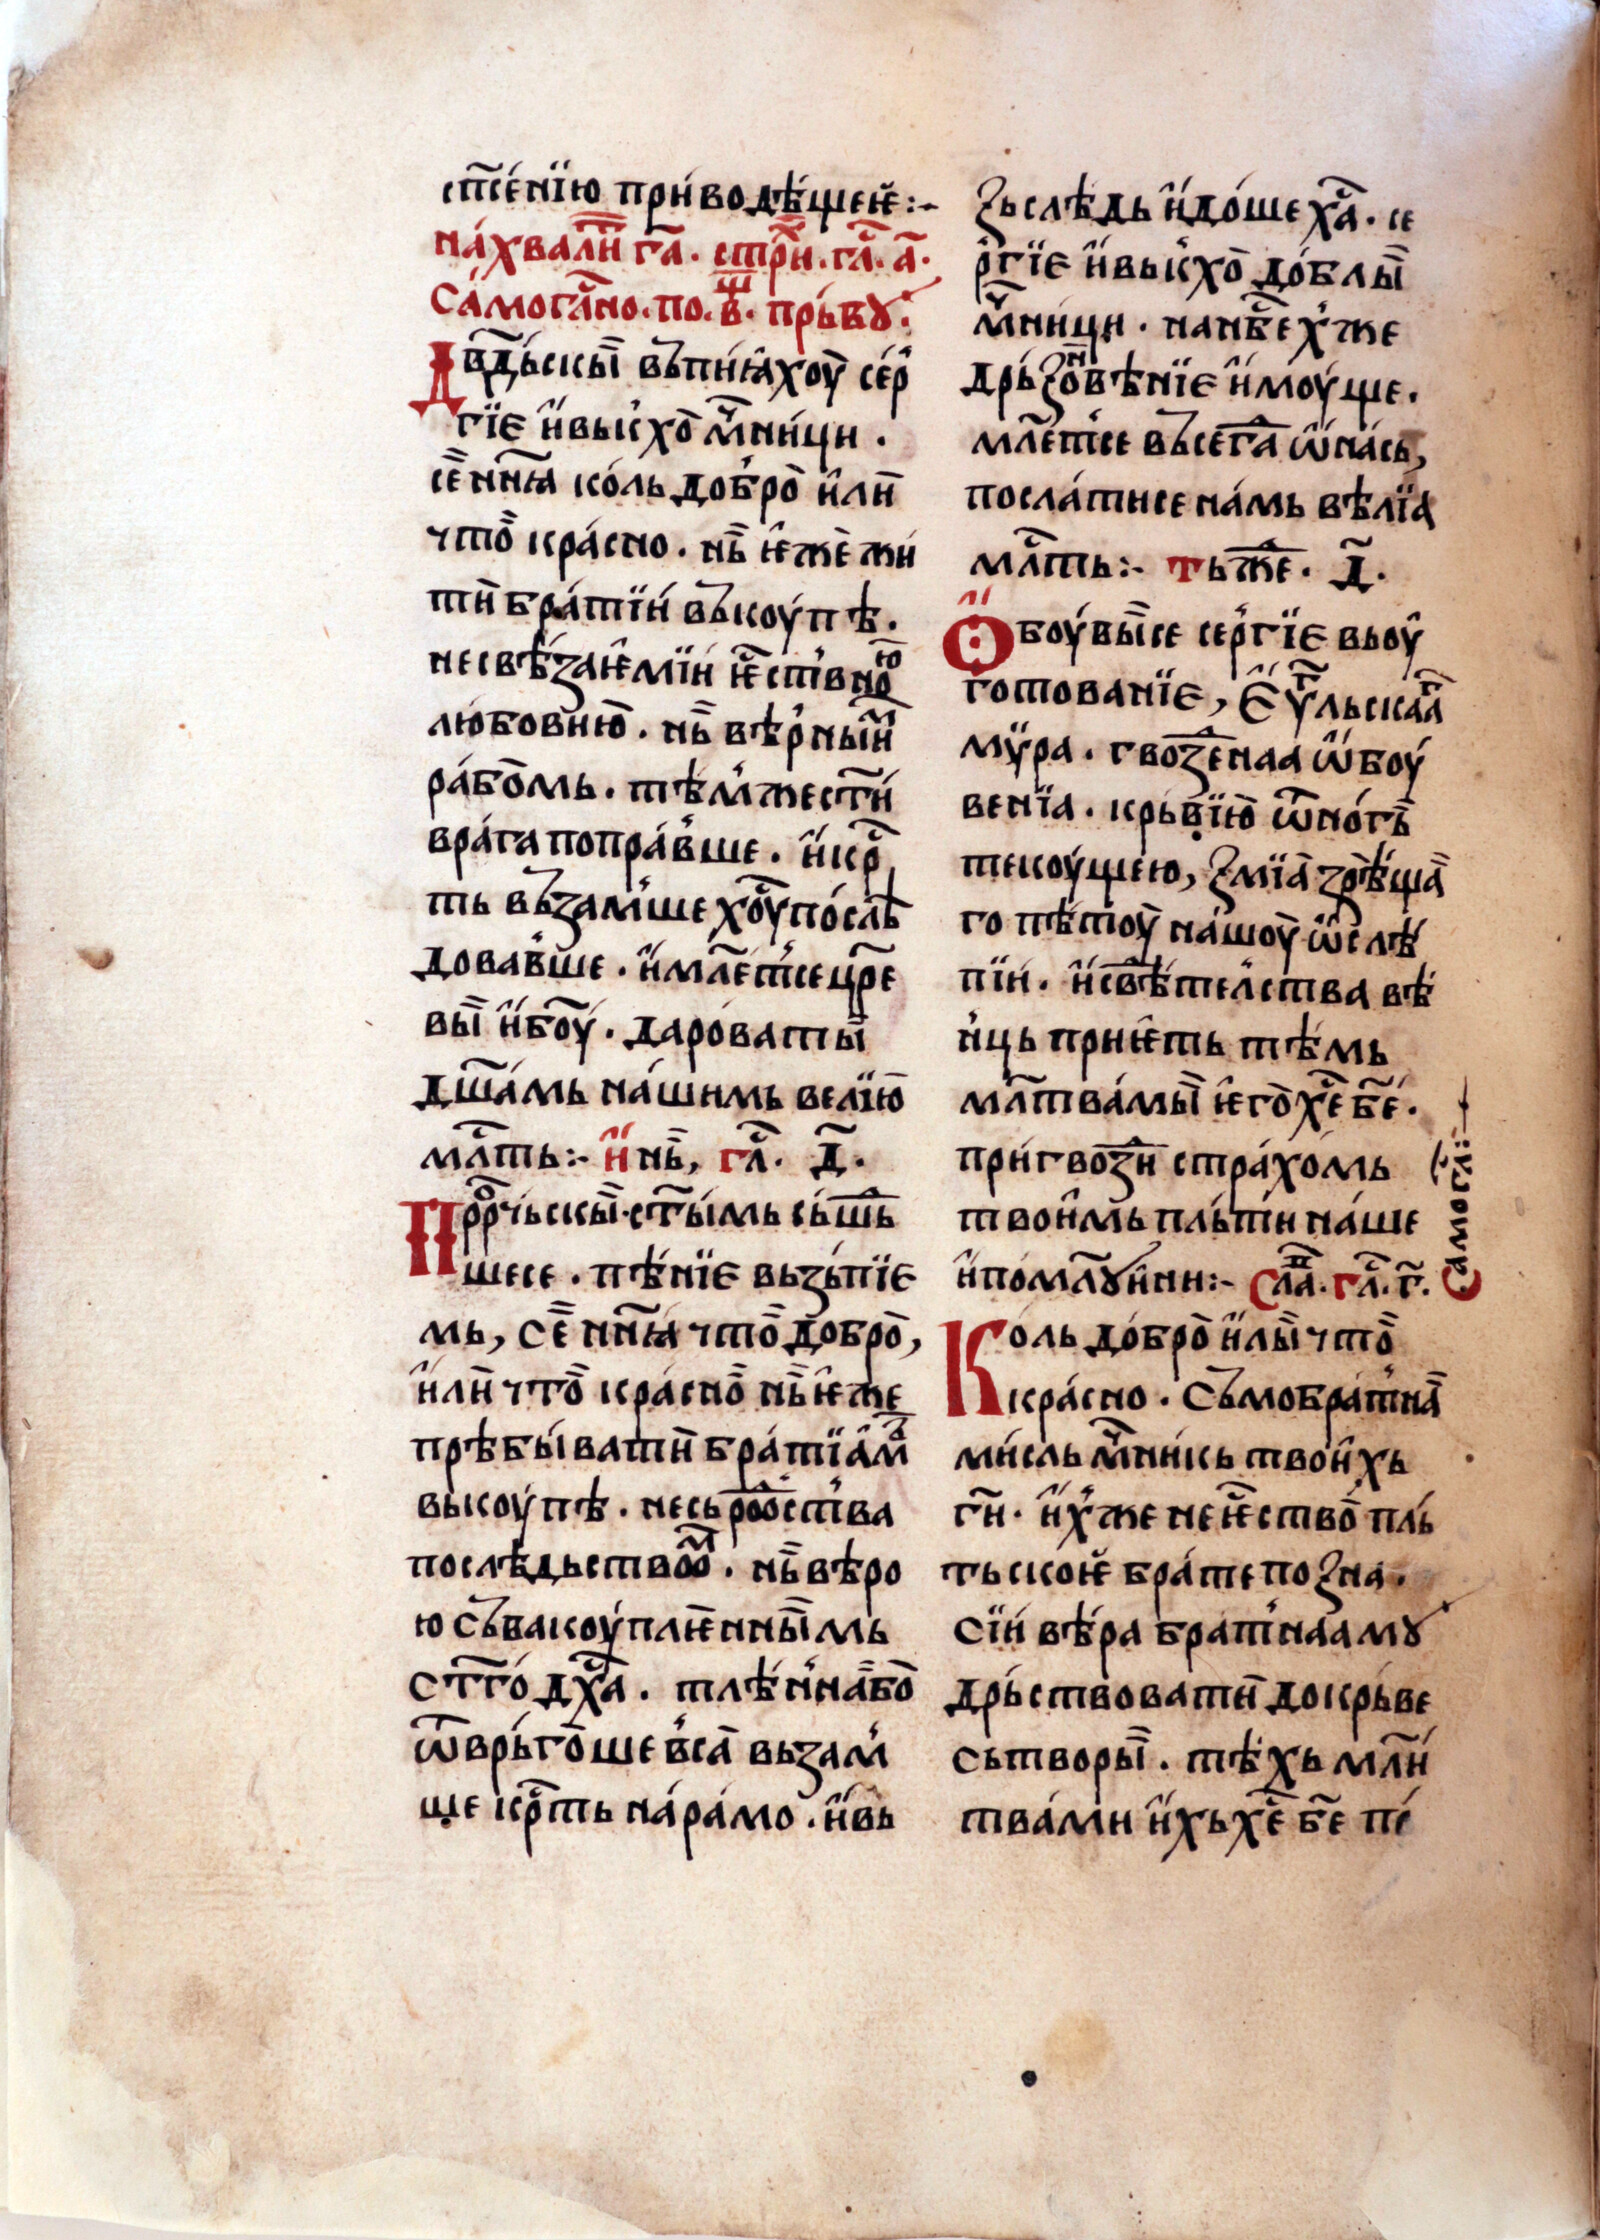 ст҃е́нїю при́водѣ́щеѥ :~
на́хвали҃ гл҃а . стр҃хи . гл҃ . а҃ .
Са́могл҃но . по . в҃ . пръ́вꙋ .
Дв҃дьскы̏ въпиꙗ́хоу̀ се́р
гїе и҆вы́кхо̀ мч҃ни́ци .
се҃ нн҃ꙗ ко́ль добро̀ и҆лѝ
что̀ кра́сно . нь̏ ѥжѐ жи
тѝ бра́тїи въкоу́пѣ .
несвѣ́заѥмїи ѥ҃стъвною
любовию̀ . нь̏ вѣ́рныи҃м
ра́бо̀мь . тѣ́мжест҃и́
вра́га попра́вше . и҆кр҃
ть възамше хо҃у по́слѣ
довавше . и҆мл҃етсе цр҃е
вы̏ и҆бо҃у . даро́ваты̏
дш҃амь на́шимь велїю̀
мл҃ть :~ и҆ нь̏, гл҃ . д҃ .
Прⷪ҇рчьскы̏ . ст҃ы́мь сь́шь
шесе . пѣ́нїе възъ́пїе
мь, се҃ нн҃ꙗ что̀ добро̀,
и҆лѝ что̀ кра́сно̀ нь̏ ѥже
прѣбы́ватѝ бра́тїа́мⷶ
вькоу́пѣ . несьрⷪ҇дства
послѣ́дьствоⷨ . нь̏ вѣ́ро
ю съвакоу́плѥнны̏мь
ст҃го̀ дх҃а . тлѣ́нна̏бо̀
ѿвръ́го̀ше вса̀ възам
ще кр҃ть на́ра́мо . и҆вь
ꙁьслѣ́дь и҆до́ше х҃а . се
ргїе и҆вы́кхо̀ до́блы̏
мч҃ни́ци . нанб҃ехже
дръ́зновѣнїе и҆моу́ще .
мл҃етсе въсегⷣа ѡ҆на́сь,
посла́тисе на́мь вѣ́лїа
мл҃ть :~ тьже҃ . д҃ .
О҆боу́вы̏се се́ргїе вьоу҆
готованїе, е҆ѵ҃льскаа
мѵ́ра . гвозде́наа ѡ҆боу́
венїа . крьвїю̀ ѿно́гь̏
текоу́щею, ꙁмїа̀ зрѣ́ща̏
го пѣ́тоу̀ на́шоу̀ ѡ҆слѣ́
пїи . и҆свѣ́телства вѣ́
нць приѥ́ть тѣ́мь
мл҃тва́мы̏ ѥго̀ хе҃ бе҃ .
при́гвозди̏ стра́хо́мь
твои҆мь пль́ти на́ше
и҆помлꙋи҆ни :~ Сла҃ . гл҃ . г҃ .
Са́могл҃
Коль до́бро̀ и҆лы̏ что̀
кра́сно . Съмобратна̏
ми́сль мч҃ни́кь твои҆хь
гѝ . и҆хже не ѥ҃ство̀ пль́
тьскоѥ бра́те по ꙁна .
Сїи вѣ́ра братнаа мꙋ
дръ́ствоватѝ докръ́ве
Сьтворы̏ . тѣ́хь мл҃и
тва́ми и҆хь хе҃ бе҃ пе́